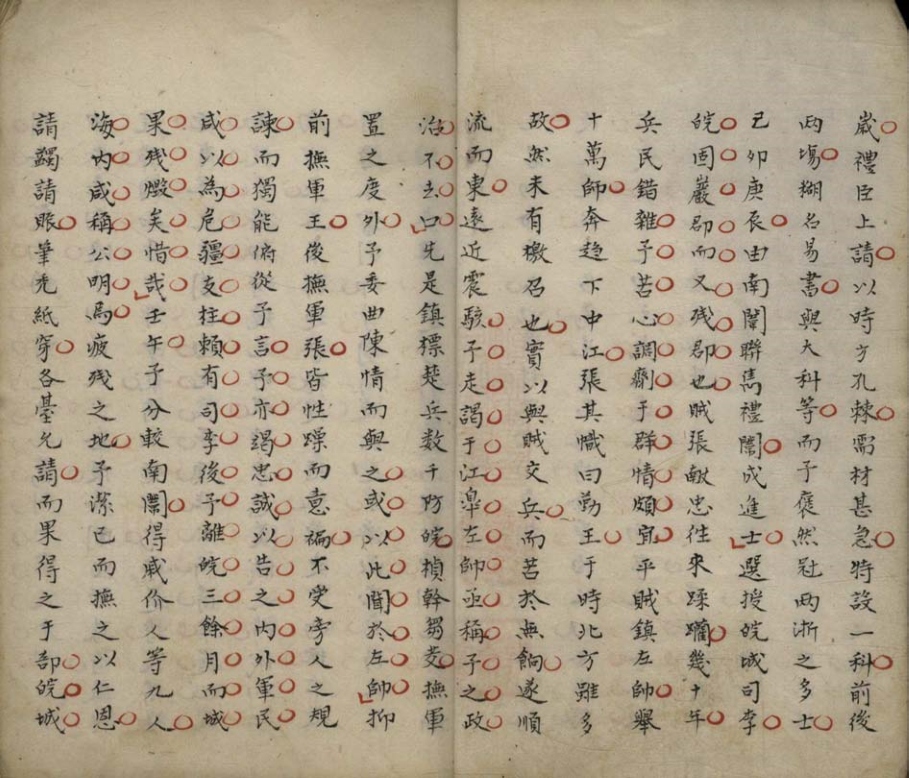 歲禮臣上請以時方孔棘需材甚急特設一科前後
兩塲糊名易書與大科等而予褎然冠兩淅之多士
己卯庚辰由南闈聯馬禮闈成進士選授皖城司李
皖固巖郡而又殘郡也賊張献忠徃來蹂躪幾十年
兵民錯雜予苦心調劑于群情頗宜平賊鎮左帥舉
十萬師奔趋下中江張其幟曰勤王于時北方雖多
故然未有檄召也實以與賊交兵而苦於無餉遂順
流而東遠近震駭予走謁于江皋左帥亟稱予之政
治不去口先是鎮摽楚兵数千防皖楨幹芻茭撫軍
置之度外予委曲陳情而與之或以此聞於左帥抑
前撫軍王後撫軍張皆性躁而意褊不受旁人之規
諫而獨能俯從予言予亦竭忠誠以告之内外軍民
咸以為危疆支柱賴有司李後予離皖三餘月而城
果殘燬矣惜哉壬午予分較南闈得戚价人等九人
海内咸稱公明焉疲殘之地予潔己而撫之以仁恩
請蠲請賑筆禿紙穿各臺允請而果得之于部皖城